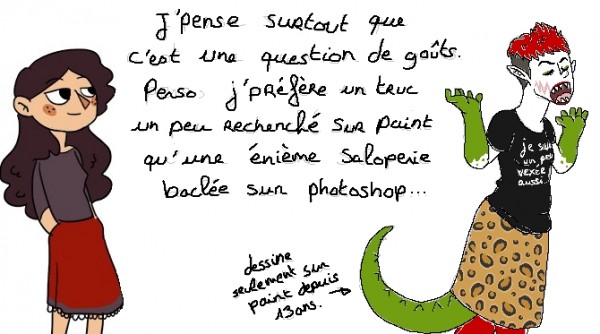 J'pense surtout que
c'est une question de goûts.
Perso j'préfère un truc
un peu recherché sur paint
qu'une énième saloperie
baclée sur photoshop...
je suis
un peu
vexée
aussi...
dessine
seulement sur
paint depuis
13 ans.